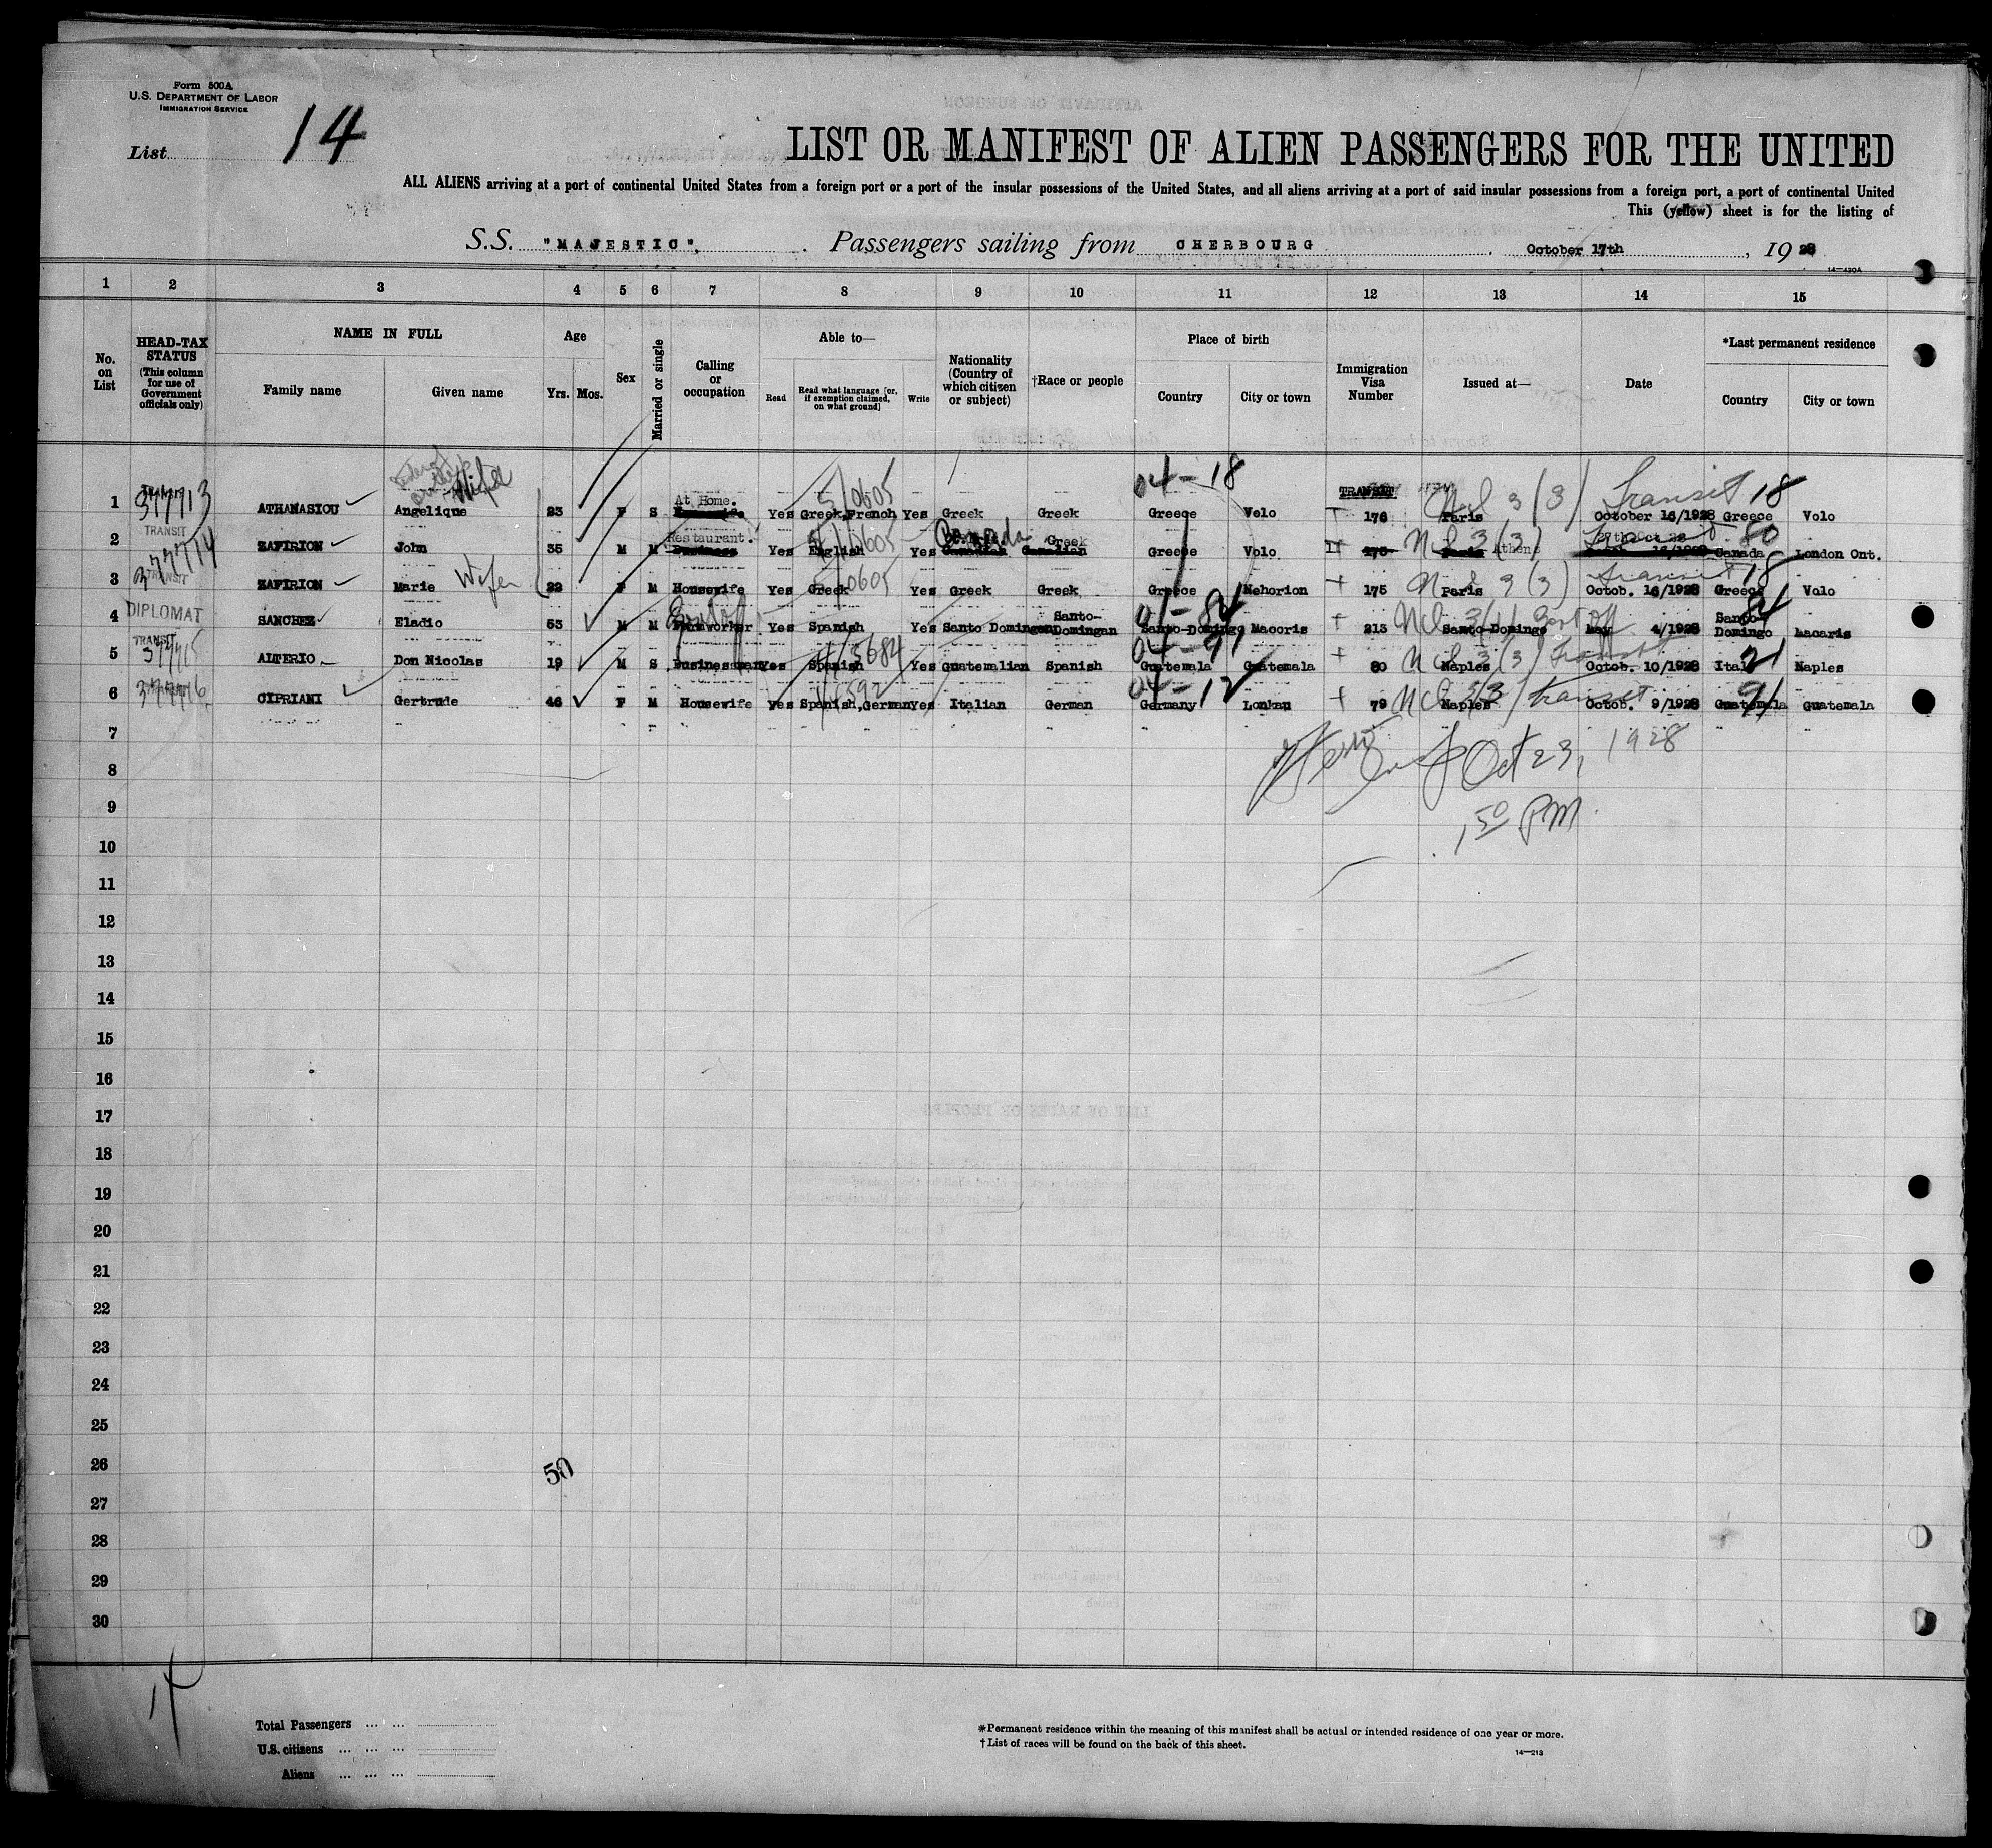 Form 500A
U.S. DEPARTMENT OF LABOR
IMMIGRATION SERVICE
List 14
LIST OR MANIFEST OF ALIEN PASSENGERS FOR THE UNITED
ALL ALIENS arriving at a port of continental United States from a foreign port or a port of the insular possessions of the United States, and all aliens arriving at a port of said insular possessions from a foreign port, a port of continental United
This (yellow) sheet is for the listing of
S.S. "MAJESTIC", Passengers sailing from CHERBOURG, October 17th, 1928
14-420A
1 2 3 4 5 6 7 8 9 10 11 12 13 14 15
No. on List
HEAD-TAX STATUS (This column for use of Government officials only)
NAME IN FULL
Family name Given name
Age
Yrs. Mos.
Sex
Married or single
Calling or occupation
Able to—
Read Read what language [or, if exemption claimed, on what ground] Write
Nationality (Country of which citizen or subject)
†Race or people
Place of birth
Country City or town
Immigration Visa Number
Issued at—
Date
*Last permanent residence
Country City or town
Wife 5/0605 04-18 TRANSIT Transit 18
1 377713 ATHANASIOU Angelique 23 F S At Home. Yes Greek,French Yes Greek Greek Greece Volo 176 Paris October 16/1928 Greece Volo
TRANSIT
2 377714 ZAFIRION John 35 M M Restaurant. Business Yes English Yes Canada Canadian Greek Canadian Greece Volo 175 Paris Athens Canada London Ont.
TRANSIT
3 ZAFIRION Marie Wife 22 F M Housewife Yes Greek Yes Greek Greek Greece Nehorion 175 Paris Octob. 16/1928 Greece Volo
4 DIPLOMAT SANCHEZ Eladio 53 M M Yes Spanish Yes Santo Domingan Santo-Domingan Santo-Domingo Macoris 213 Santo-Domingo May 4/1928 Santo-Domingo Macaris
TRANSIT
5 377715 ALTERIO Don Nicolas 19 M S Businessman Yes Spanish Yes Guatemalian Spanish Guatemala Guatemala 80 Naples Octob. 10/1928 Italy Naples
6 377716 CIPRIANI Gertrude 46 F M Housewife Yes Spanish,German Yes Italian German Germany Lonkau 79 Naples Transit Octob. 9/1928 Guatemala Guatemala
7
Oct 23, 1928
8
9
1 50 PM
10
11
12
13
14
15
16
17
18
19
20
21
22
23
24
25
26
50
27
28
29
30
14
Total Passengers ... ...
U.S. citizens ... ... ...
Aliens ... ... ...
*Permanent residence within the meaning of this manifest shall be actual or intended residence of one year or more.
†List of races will be found on the back of this sheet.
14-213